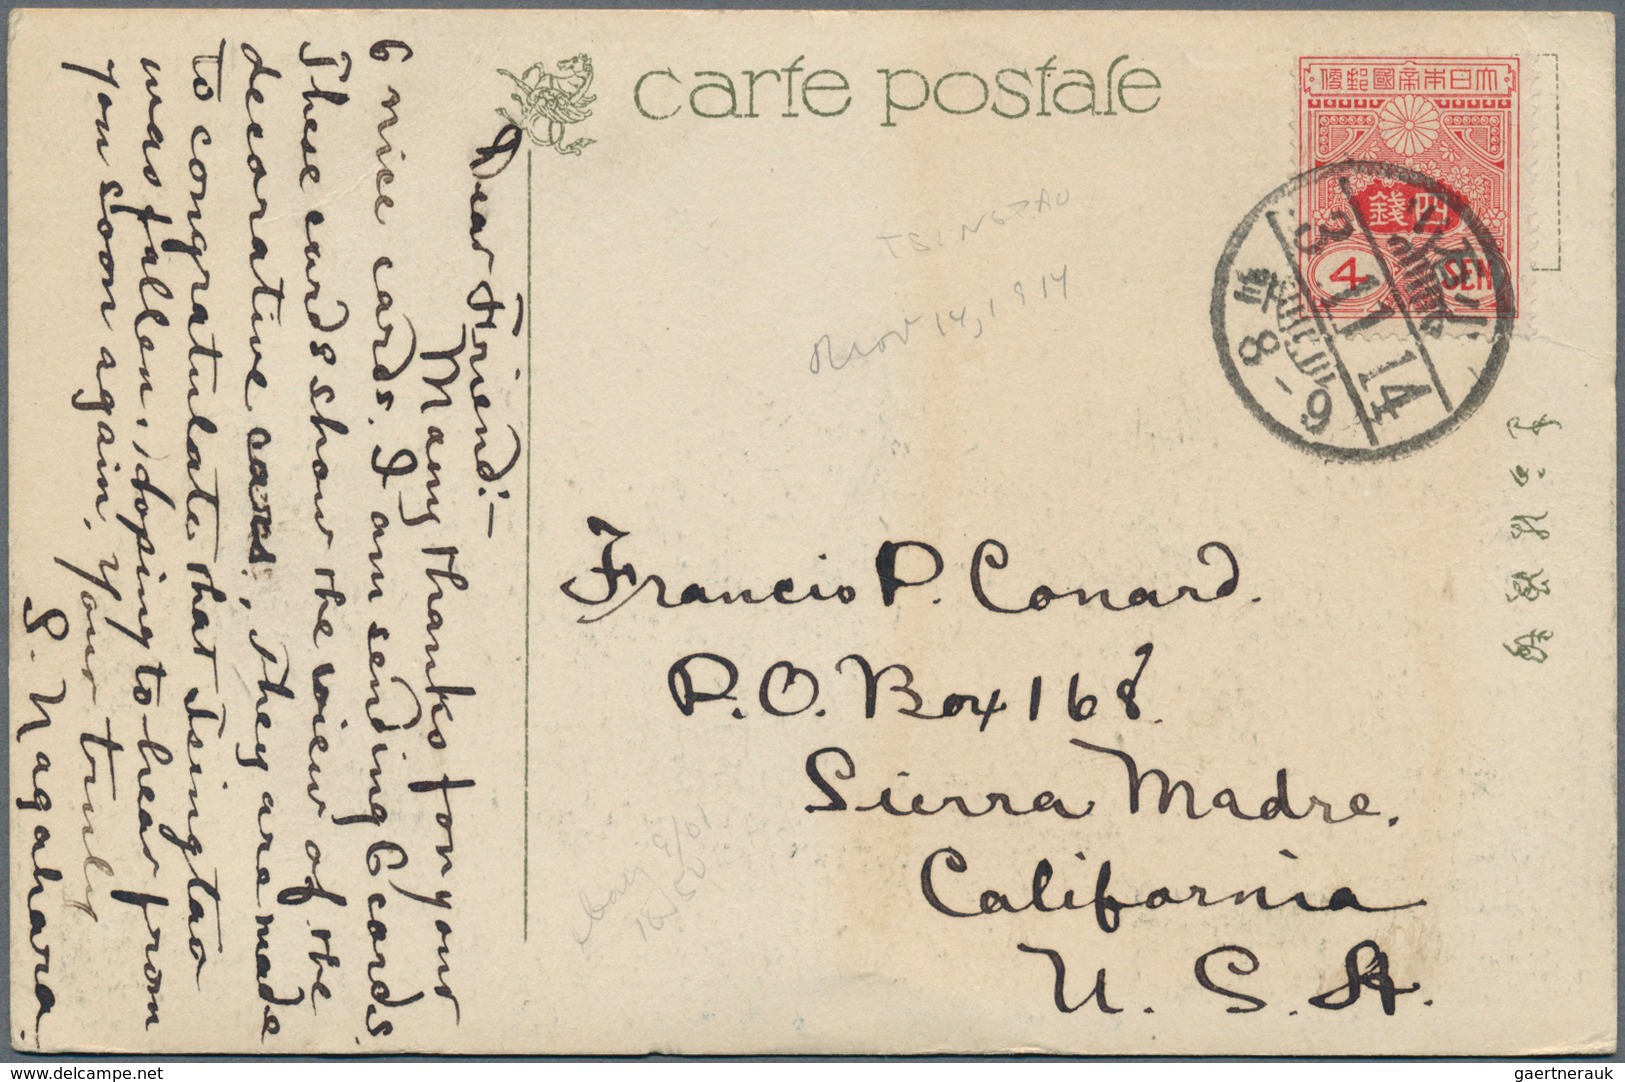 carte postale
大日本帝國郵便
四錢
4 SEN
3 11 14
后
8-9
TSINGTAO
Nov 14, 1914
Dear Friend:—
Many thanks for your
6 nice cards. I am sending 6 cards.
These cards show the view of the
decorative cars, They are made
to congratulate that Tsingtao
was fallen, hoping to hear from
you soon again, your truly
S. Nagahara.
Francis P. Conard.
P.O. Box 168.
Sierra Madre.
California
U. S. A.
www.delcampe.net
gaertnerauk